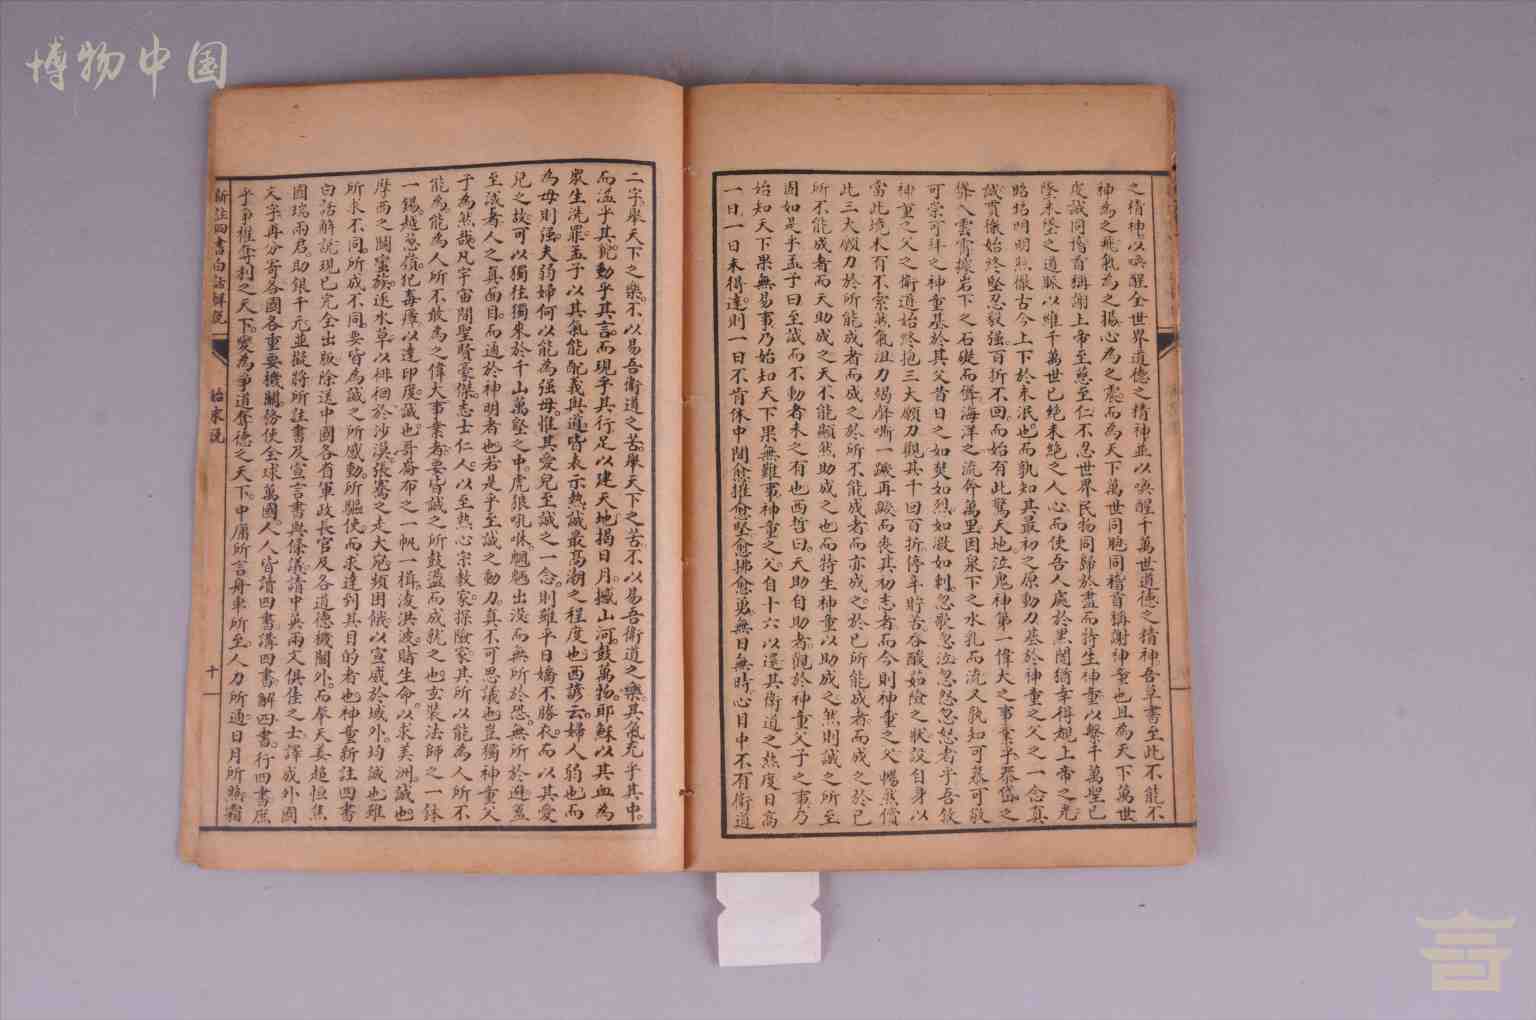 博物中国
之精神以喚醒全世界道德之精神並以喚醒千萬世道德之精神吾草書至此不能不
神為之飛氣為之振心為之震而為天下萬世同胞同稽首稱謝神童也且為天下萬世
虔誠同稽首稱謝上帝至慈至仁不忍世界民物同歸於盡而特生神童以繫千萬聖已
墜未墜之道脈以維千萬世已絕未絕之人心而使吾人處於黑闇猶幸得覩上帝之光
昭昭明明照徹古今上下於未泯也而孰知其最初之原動力基於神童之父之一念真
誠貫徹始終堅忍毅強百折不回而始有此驚天地泣鬼神第一偉大之事業乎泰岱之
聳入雲霄據岩下之石礎而聳海洋之流奔萬里因泉下之水乳而流又孰知可慕可敬
可崇可拜之神童基於其父昔日之如焚如烈如激如刺忽歌忽泣忽怨忽怒者乎吾雖
神童之父之衛道始終抱三大願力觀其千回百折停辛貯苦吞酸茹險之狀設自身以
當此境未有不索然氣沮力竭聲嘶一蹶再蹶而喪其初志者而今則神童之父暢然償
此三大願力於所能成者而成之於所不能成者而亦成之於己所能成者而成之於己
所不能成者而天助成之天不能顯然助成之也而特生神童以助成之然則誠之所至
固如是乎孟子曰至誠而不動者未之有也西哲曰天助自助者觀於神童父子之事乃
始知天下果無易事乃始知天下果無難事神童之父自十六以還其衛道之熱度日高
一日一日未得達則一日不肯休中間愈摧愈堅愈拂愈勇無日無時心目中不有衛道
二字舉天下之樂不以易吾衛道之苦舉天下之苦不以易吾衛道之樂其氣充乎其中
而溢乎其貌動乎其言而現乎其行足以建天地揭日月撼山河鼓萬物耶穌以其血為
眾生洗罪孟子以其氣能配義與道皆表示熱誠最高潮之程度也西諺云婦人弱也而
為母則強夫弱婦何以能為强母惟其愛兒至誠之一念則雖平日嬌不勝衣而以其愛
兒之故可以獨往獨來於千山萬壑之中虎狼吼咻魍魎出沒而無所於恐無所於避蓋
至誠者人之真面目而通於神明者也若是乎至誠之動力真不可思議也豈獨神童父
子為然哉凡宇宙間聖賢豪傑志士仁人以至熱心宗教家探險家其所以能為人所不
能為能為人所不敢為之偉大事業者要皆誠之所鼓盪而成就之也玄裝法師之一鉢
一錫越葱嶺犯毒瘴以達印度誠也哥崙布之一帆一楫凌洪波賭生命以求美洲誠也
摩西之闢蠻族逐水草以徘徊於沙漠張騫之走大宛頻困餓以宣威於域外均誠也雖
所求不同所成不同要皆為誠之所感動所驅使而求達到其目的者也神童新註四書
白話解說現已完全出版除送中國各省軍政長官及各道德機關外而奉天姜超恒焦
國瑞兩君助銀千元並擬將所註書及宣言書與條議請中英兩文俱佳之士譯成外國
文字再分寄各國各重要機關務使全球萬國人人皆讀四書講四書解四書行四書庶
乎爭權奪利之天下變為爭道奪德之天下中庸所言舟車所至人力所通日月所照霜
新註四書白話解說
始末說
十